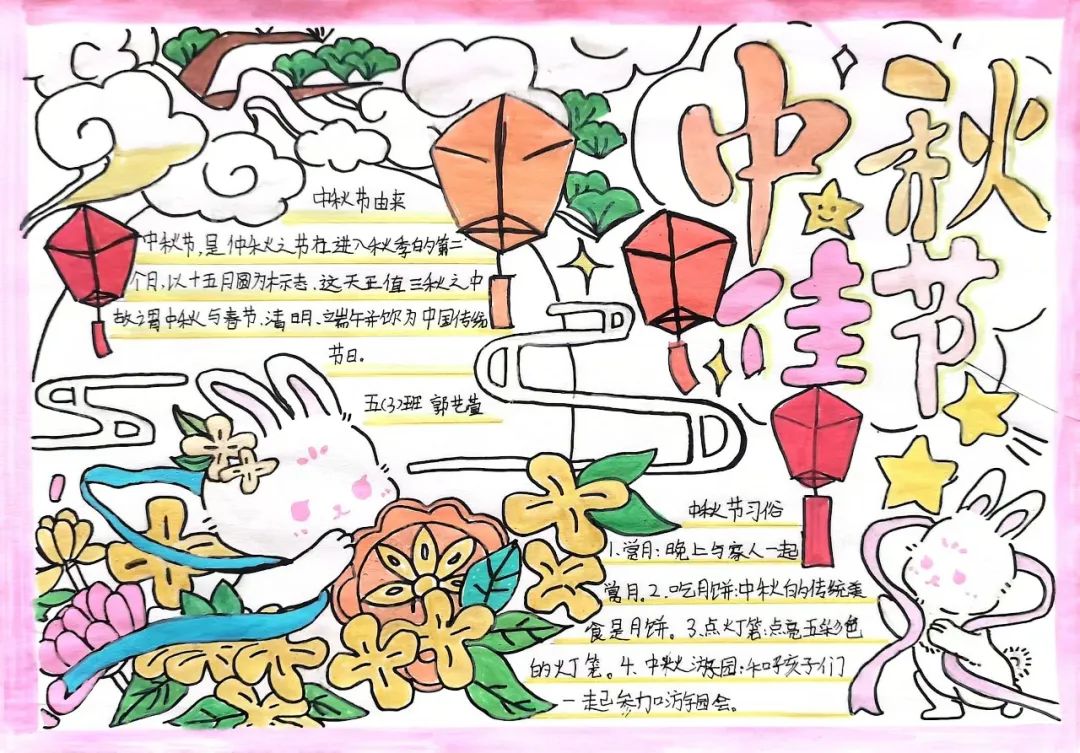 中秋佳节
中秋节由来
中秋节,是仲秋之节在进入秋季的第二
个月,以十五月圆为标志、这天正值三秋之中
故谓中秋与春节、清明、端午并称为中国传统
节日。
五(3)班 郭艺萱
中秋节习俗
1.赏月:晚上与家人一起
赏月。2.吃月饼:中秋的传统美
食是月饼。3.点灯笼:点亮五彩色
的灯笼。4.中秋游园:和孩子们
一起参加游园会。